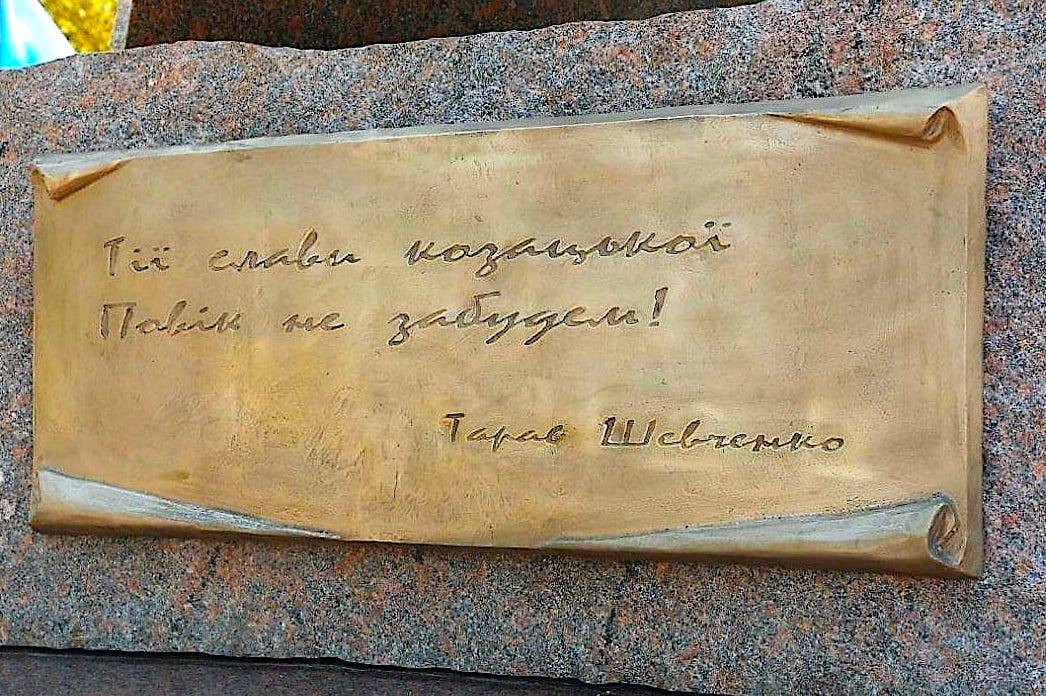 Тії слави козацької
Повік не забудем!
Тарас Шевченко